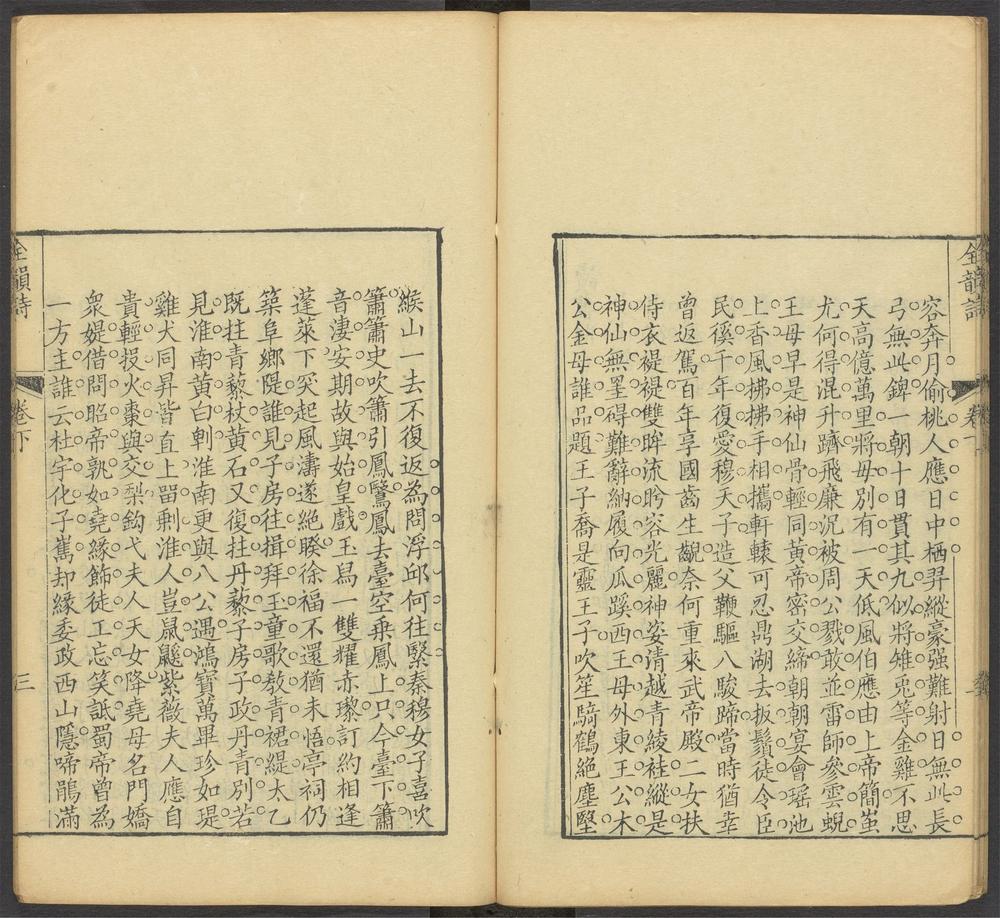 全韻詩
卷下
容奔月偷桃人應日中栖羿縱豪强難射日無此長
弓無此錍一朝十日貫其九似將雉兎等金雞不思
天高億萬里將毋別有一天低風伯應由上帝簡蚩
尤何得混升躋飛廉況被周公戮敢並雷師參雲蜺
王母早是神仙骨輕同黃帝密交締朝朝宴會瑶池
上香風拂拂手相攜軒轅可忍鼎湖去扳鬚徒令臣
民徯千年復愛穆天子造父鞭驅八駿蹄當時猶幸
曾返駕百年享國齒生齯奈何重來武帝殿二女扶
侍衣褆褆雙眸流盻容光麗神姿清越青綾袿縱是
神仙無罣碍難辭納履向瓜蹊西王母外東王公木
公金母誰品題王子喬是靈王子吹笙騎鶴絶塵堅
緱山一去不復返為問浮邱何往繄秦穆女子喜吹
簫簫史吹簫引鳳鷖鳳去臺空乘鳳上只今臺下簫
音淒安期故與始皇戲玉舄一雙耀赤瓈訂約相逢
蓬萊下突起風濤遂絶睽徐福不還猶未悟亭祠仍
築阜鄉隄誰見子房往揖拜玉童歌教青裙緹太乙
既拄青藜杖黃石又復拄丹藜子房子政丹青別若
見淮南黃白刲淮南更與八公遇鴻寶萬畢珍如瑅
雞犬同昇皆直上畱剩淮人豈鼠鼷紫薇夫人應自
貴輕投火棗與交梨鈎弋夫人天女降堯母名門嬌
衆媞借問昭帝孰如堯緣飾徒工忘笑詆蜀帝曾為
一方主誰云杜宇化子巂却緣委政西山隱啼鵑滿
全韻詩
卷下
三